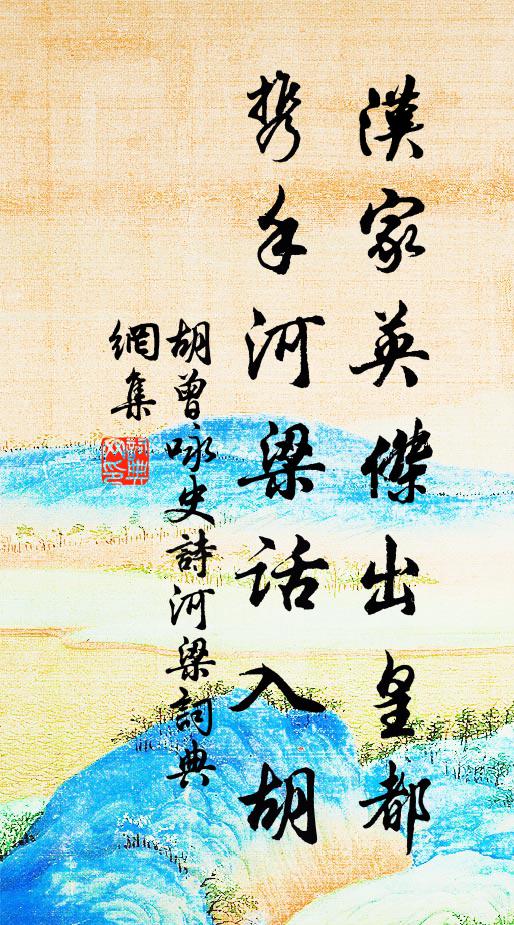 漢家英傑出皇都
携手河梁話入胡
胡曾咏史詩河梁詞典
網集